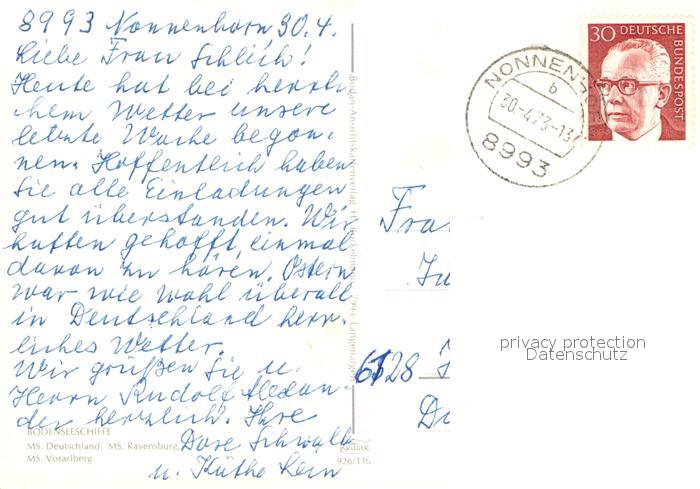 8993 Nonnenhorn 30.4.
Liebe Frau Schleich!
Heute hat bei herrli-
chem Wetter unsere
letzte Woche begon-
nen. Hoffentlich haben
Sie alle Einladungen
gut überstanden. Wir
hatten gehofft, einmal
davon zu hören. Ostern
war wie wohl überall
in Deutschland herr-
liches Wetter.
Wir grüßen Sie u.
Herrn Rudolf Alexan-
der herzlich. Ihre
Dore Schwalb
u. Käthe Lein
BODENSEESCHIFFE
MS. Deutschland, MS. Ravensburg,
MS. Vorarlberg
KRÜGER
926/116
NONNENHORN
b
30-4.73-13
8993
30 DEUTSCHE
BUNDESPOST
Frau
6128
privacy protection
Datenschutz